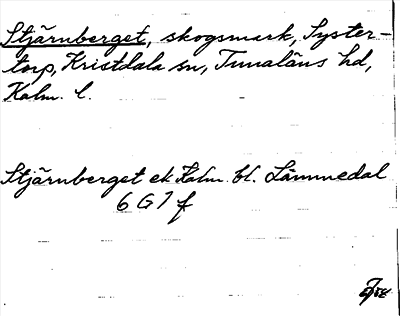 Stjärnberget, skogsmark, Syster-
torp, Kristdala sn, Tunaläns hd,
Kalm. l.
Stjärnberget ek. Kalm. bl. Lämmedal
6 G 7 f